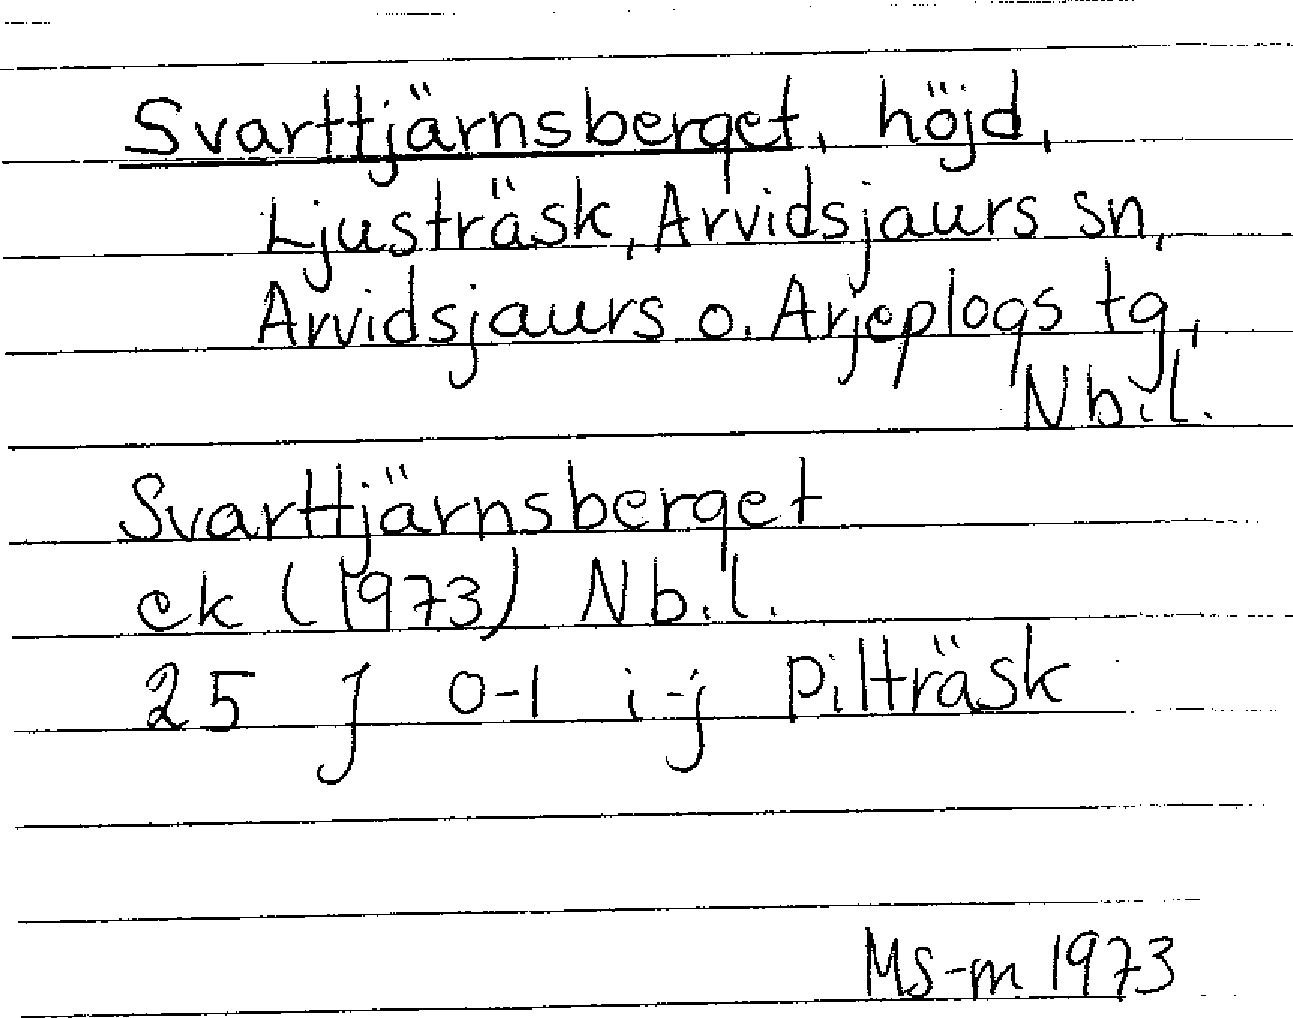 Svarttjärnsberget, höjd,
Ljusträsk, Arvidsjaurs sn,
Arvidsjaurs o. Arjeplogs tg,
Nb.l.
Svarttjärnsberget
ek (1973) Nb.l.
25 J 0-1 i-j Pilträsk
MS-m 1973